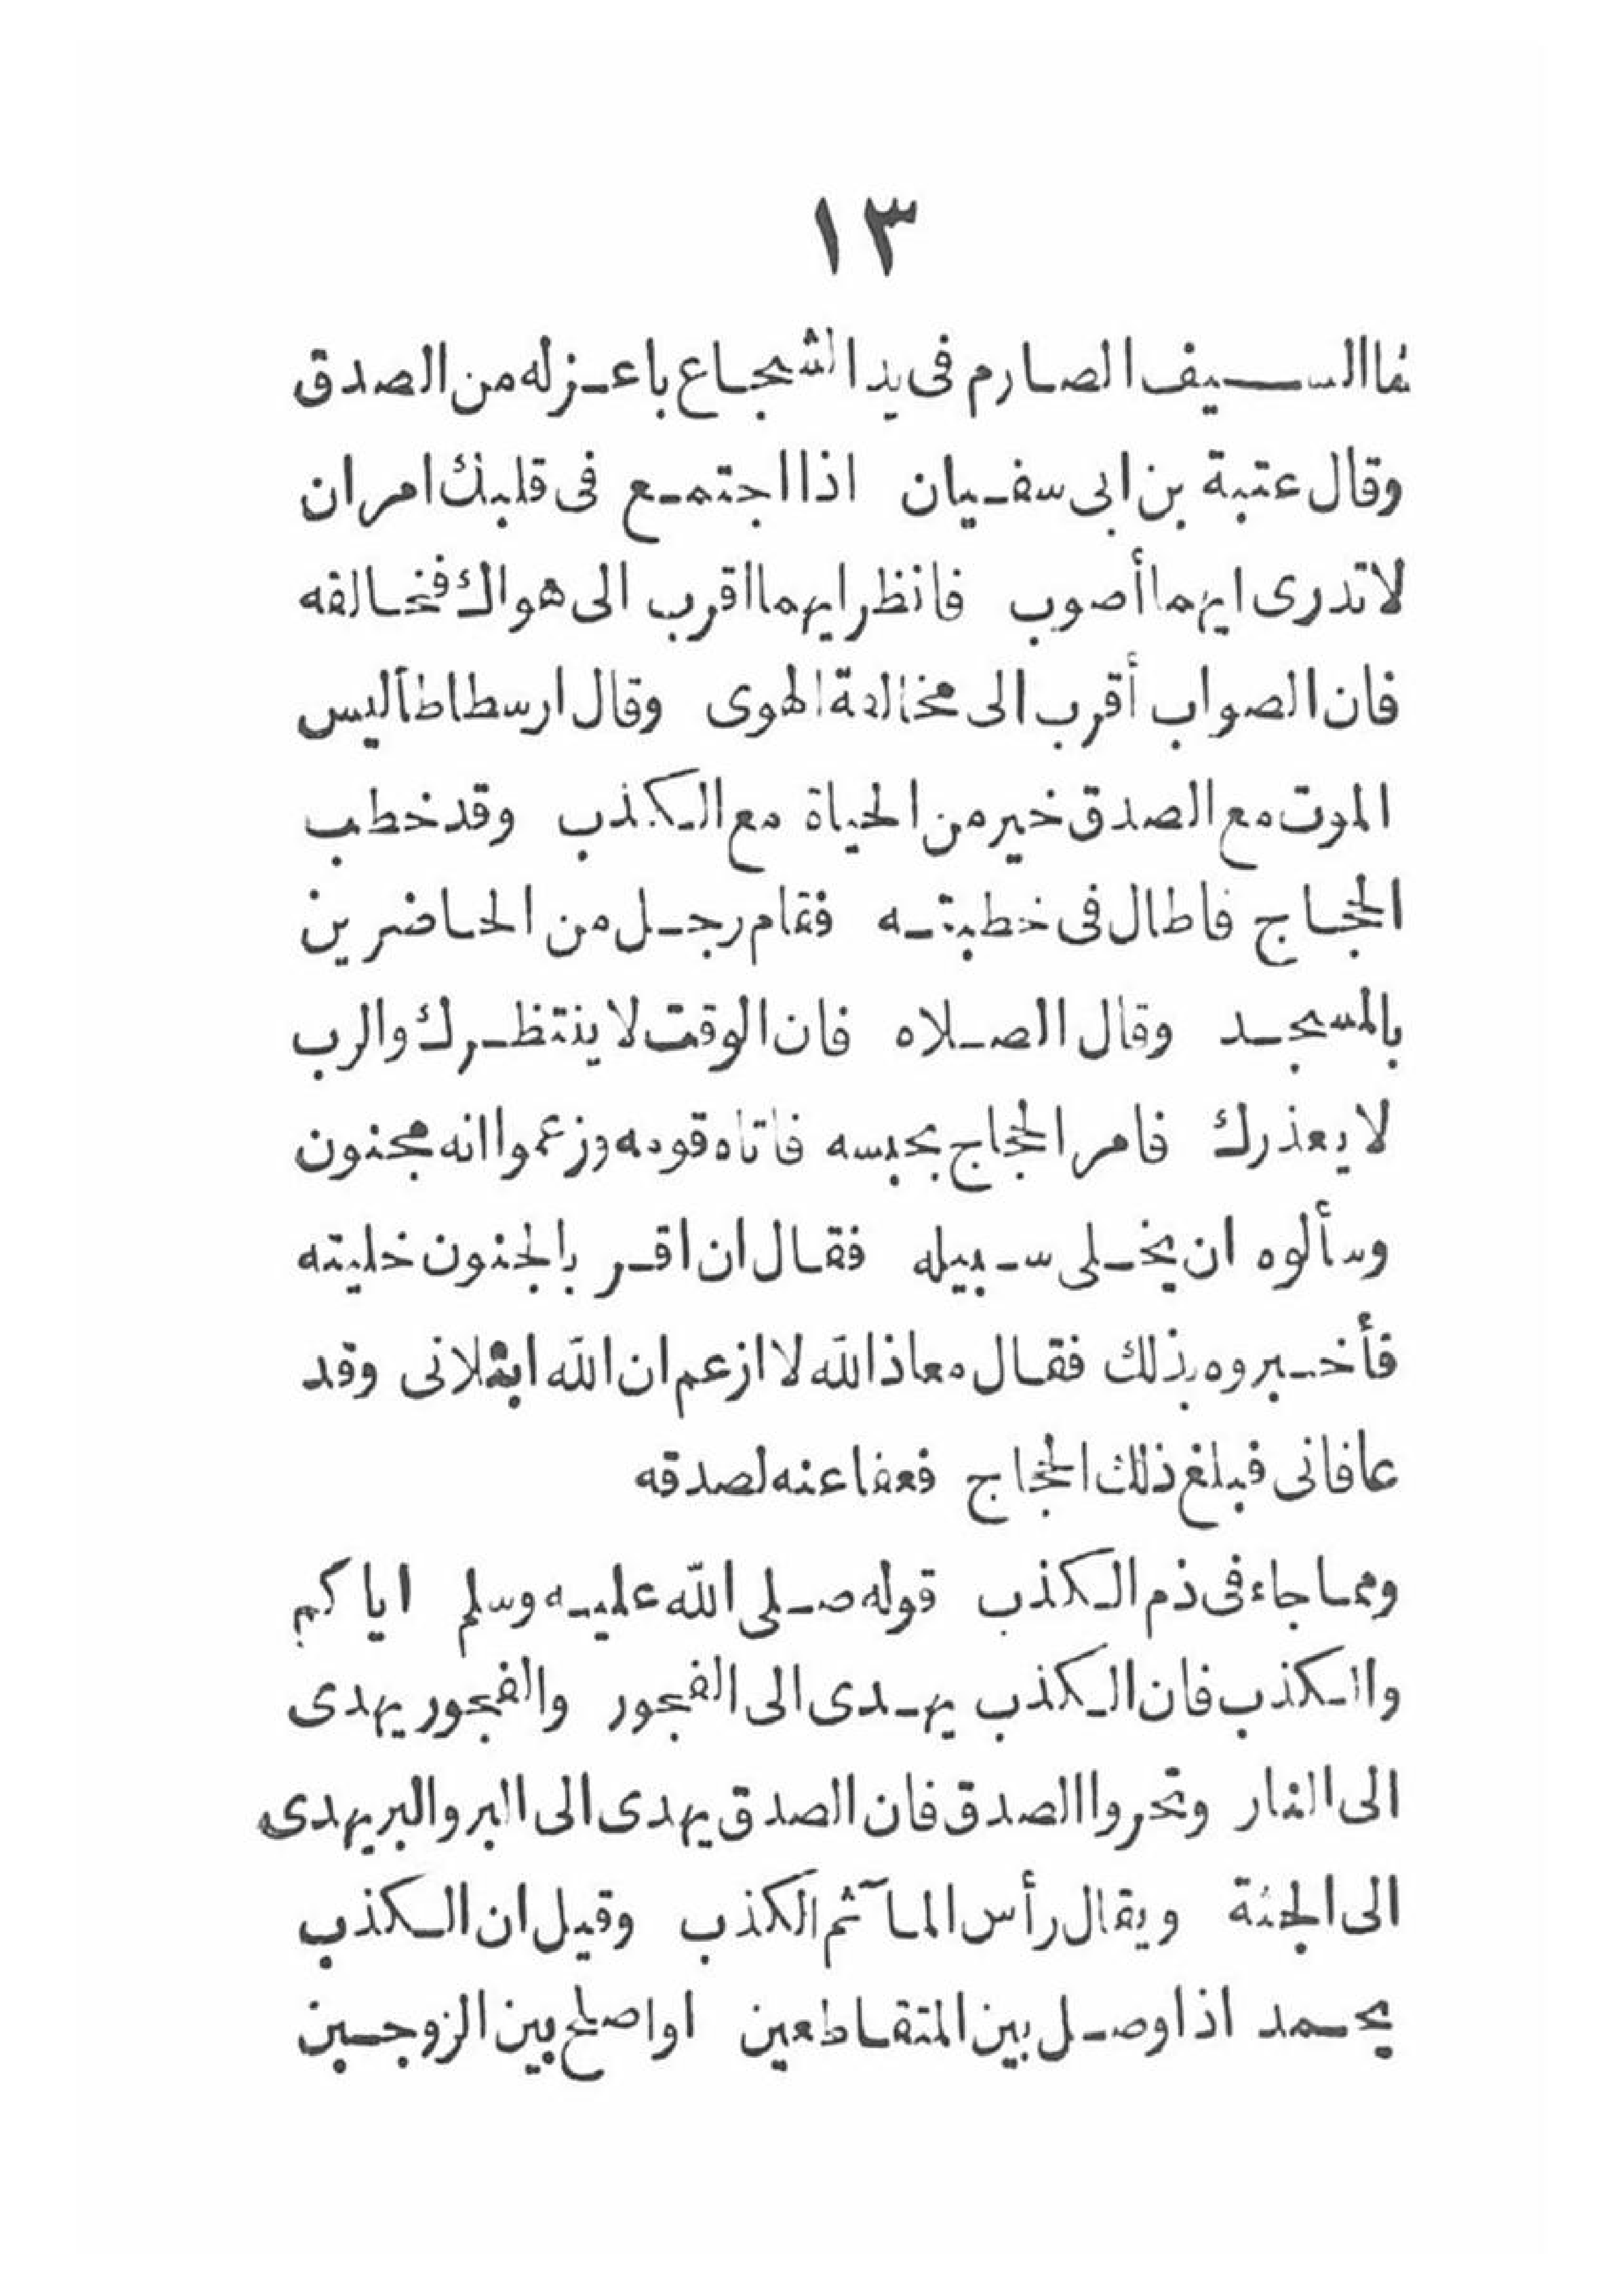 ١٣
فما السيف الصارم فى يد الشجاع باعزله من الصدق
وقال عتبة بن ابى سفيان اذا اجتمع فى قلبك امران
لاتدرى ايهما أصوب فانظر ايهما اقرب الى هواك فخالفه
فان الصواب أقرب الى مخالفة الهوى وقال ارسطاطاليس
الموت مع الصدق خير من الحياة مع الكذب وقد خطب
الحجاج فاطال فى خطبته فقام رجل من الحاضرين
بالمسجد وقال الصلاه فان الوقت لا ينتظرك والرب
لا يعذرك فامر الحجاج بحبسه فاتاه قومه وزعموا انه مجنون
وسألوه ان يخلى سبيله فقال ان اقر بالجنون خليته
فأخبروه بذلك فقال معاذ الله لا ازعم ان الله ابتلانى وقد
عافانى فبلغ ذلك الحجاج فعفا عنه لصدقه
ومما جاء فى ذم الكذب قوله صلى الله عليه وسلم اياكم
والكذب فان الكذب يهدى الى الفجور والفجور يهدى
الى النار وتحروا الصدق فان الصدق يهدى الى البر والبر يهدى
الى الجنة ويقال رأس المآثم الكذب وقيل ان الكذب
يحمد اذا وصل بين المتقاطعين او اصلح بين الزوجين